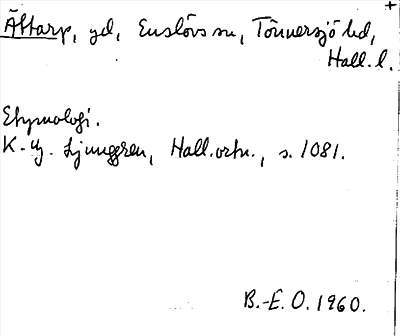 Ättarp, gd, Enslövs sn, Tönnersjö hd,
Hall. l.
Etymologi.
K.-G. Ljunggren, Hall. ortn., s. 1081.
B.-E. O. 1960.